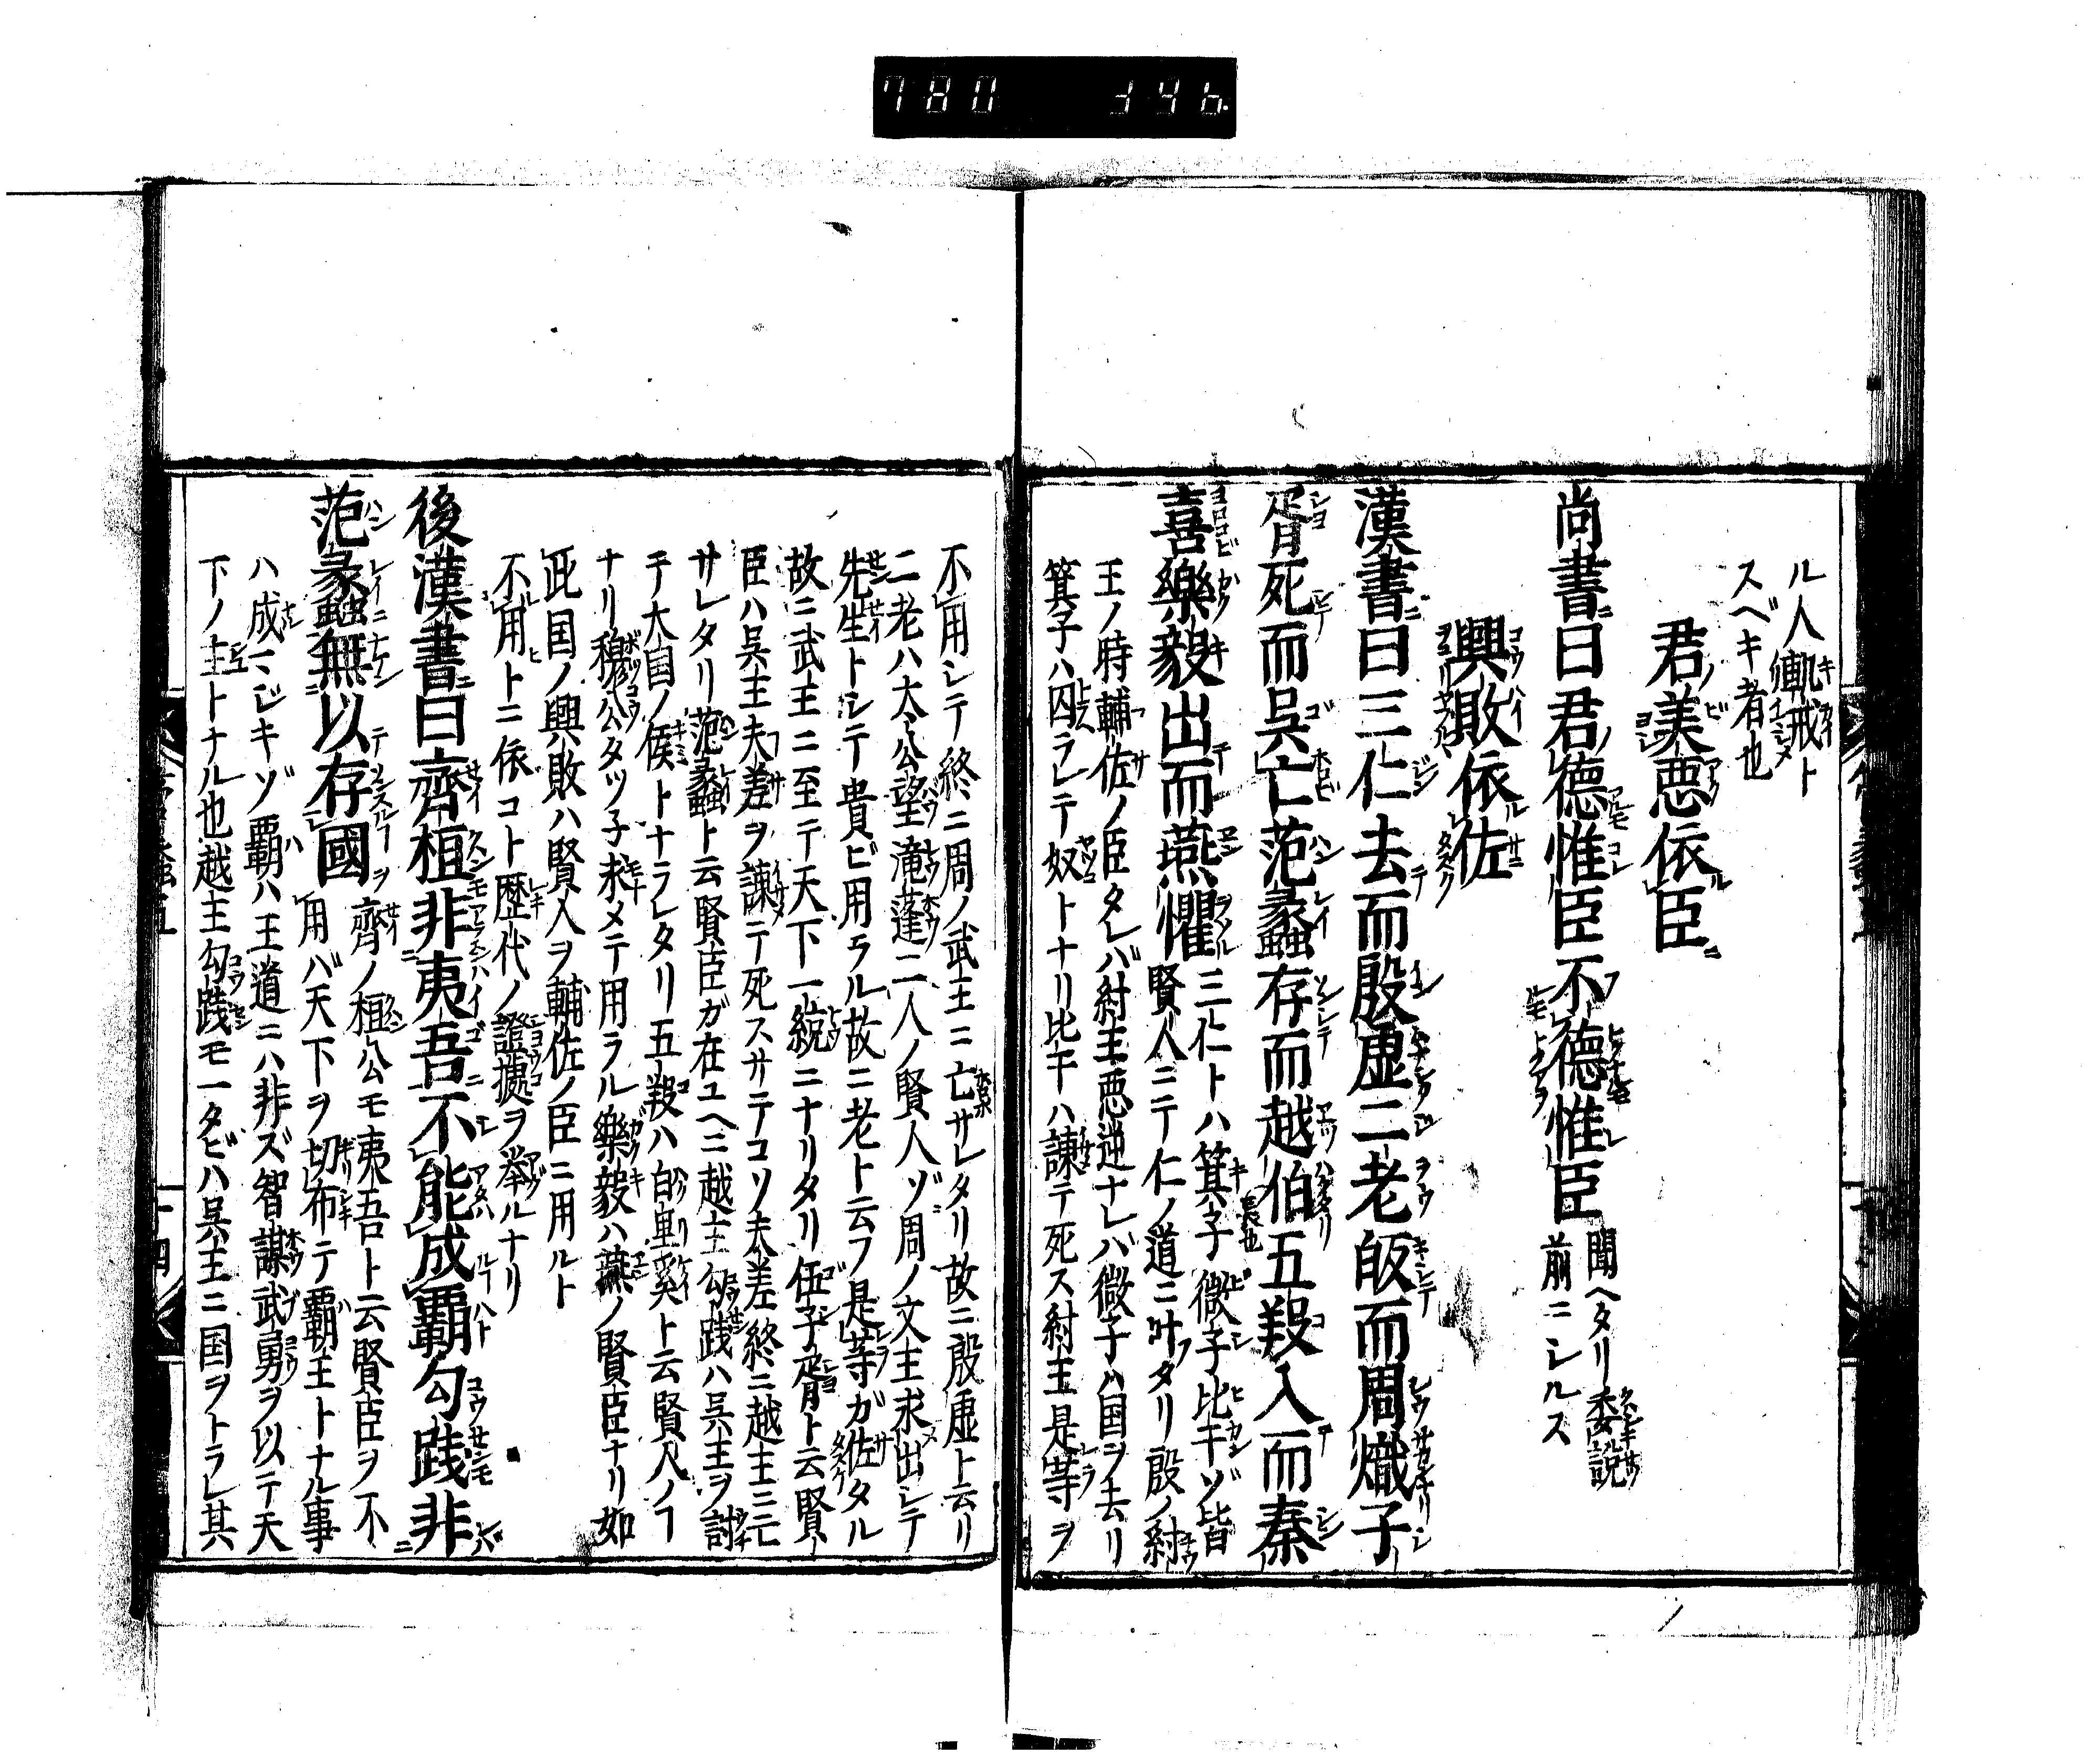 780 346
ル人軌戒ト
スベキ者也
君美悪依臣
尚書曰君德惟臣不德惟臣 聞ヘタリ委說
前ニシルス
興敗依佐
漢書曰三仁去而殷虛二老皈而周熾子
胥死而吳亡范蠡存而越伯五羖入而秦
喜樂毅出而燕懼 三仁トハ箕子微子比干ゾ皆
賢人ニテ仁ノ道ニ叶タリ殷ノ紂
王ノ時輔佐ノ臣タレバ紂王悪逆ナレバ微子ハ国ヲ去リ
箕子ハ囚ラレテ奴トナリ比干ハ諫テ死ス紂王是等ヲ
不用シテ終ニ周ノ武王ニ亡サレタリ故ニ殷虛ト云リ
二老ハ大公望滝蓬二人ノ賢人ゾ周ノ文王求出シテ
先生トシテ貴ビ用ラル故ニ老ト云フ是等ガ佐タル
故ニ武王ニ至テ天下一統ニナリタリ伍子胥ト云賢
臣ハ吳王夫差ヲ諫テ死スサテコソ夫差終ニ越王ニ亡
サレタリ范蠡ト云賢臣ガ在ユヘニ越王勾踐ハ吳王ヲ討
テ大国ノ侯トナラレタリ五羖ハ百里奚ト云賢人ノ
ナリ穆公タツ子求メテ用ラル樂毅ハ燕ノ賢臣ナリ如
此国ノ興敗ハ賢人ヲ輔佐ノ臣ニ用ルト
不用トニ依コト歷代ノ證據ヲ挙ルナリ
後漢書曰齊桓非夷吾不能成覇勾踐非
范蠡無以存國 齊ノ桓公モ夷吾ト云賢臣ヲ不
用バ天下ヲ切布テ覇王トナル事
ハ成マジキゾ覇ハ王道ニハ非ズ智謀武勇ヲ以テ天
下ノ主トナル也越王勾踐モ一タビハ吳王ニ国ヲトラレ其